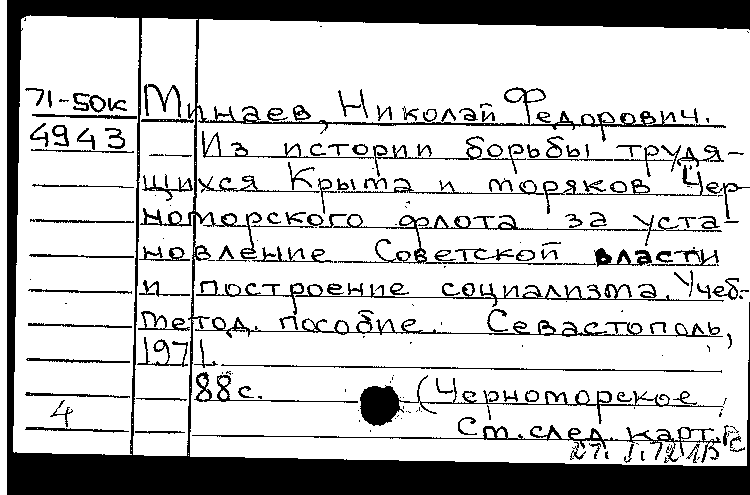 71-50к Минаев, Николай Федорович.
4943 Из истории борьбы трудя-
щихся Крыма и моряков Чер-
номорского флота за уста-
новление Советской власти
и построение социализма. Учеб.-
метод. пособие. Севастополь,
1971.
88с. (Черноморское
4 См. след. карт.